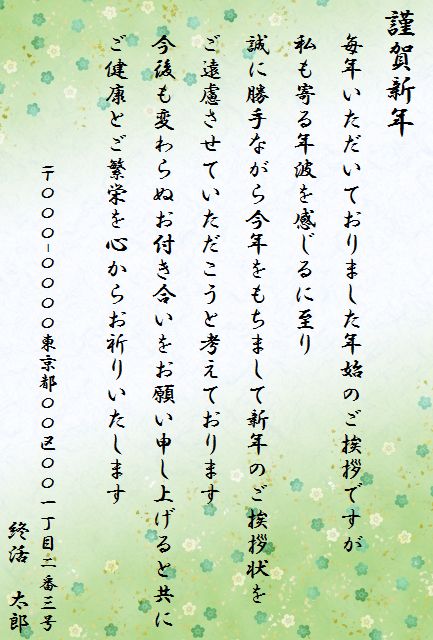 謹賀新年
毎年いただいておりました年始のご挨拶ですが
私も寄る年波を感じるに至り
誠に勝手ながら今年をもちまして新年のご挨拶状を
ご遠慮させていただこうと考えております
今後も変わらぬお付き合いをお願い申し上げると共に
ご健康とご繁栄を心からお祈りいたします
〒〇〇〇-〇〇〇〇東京都〇〇区〇〇一丁目二番三号
終活 太郎